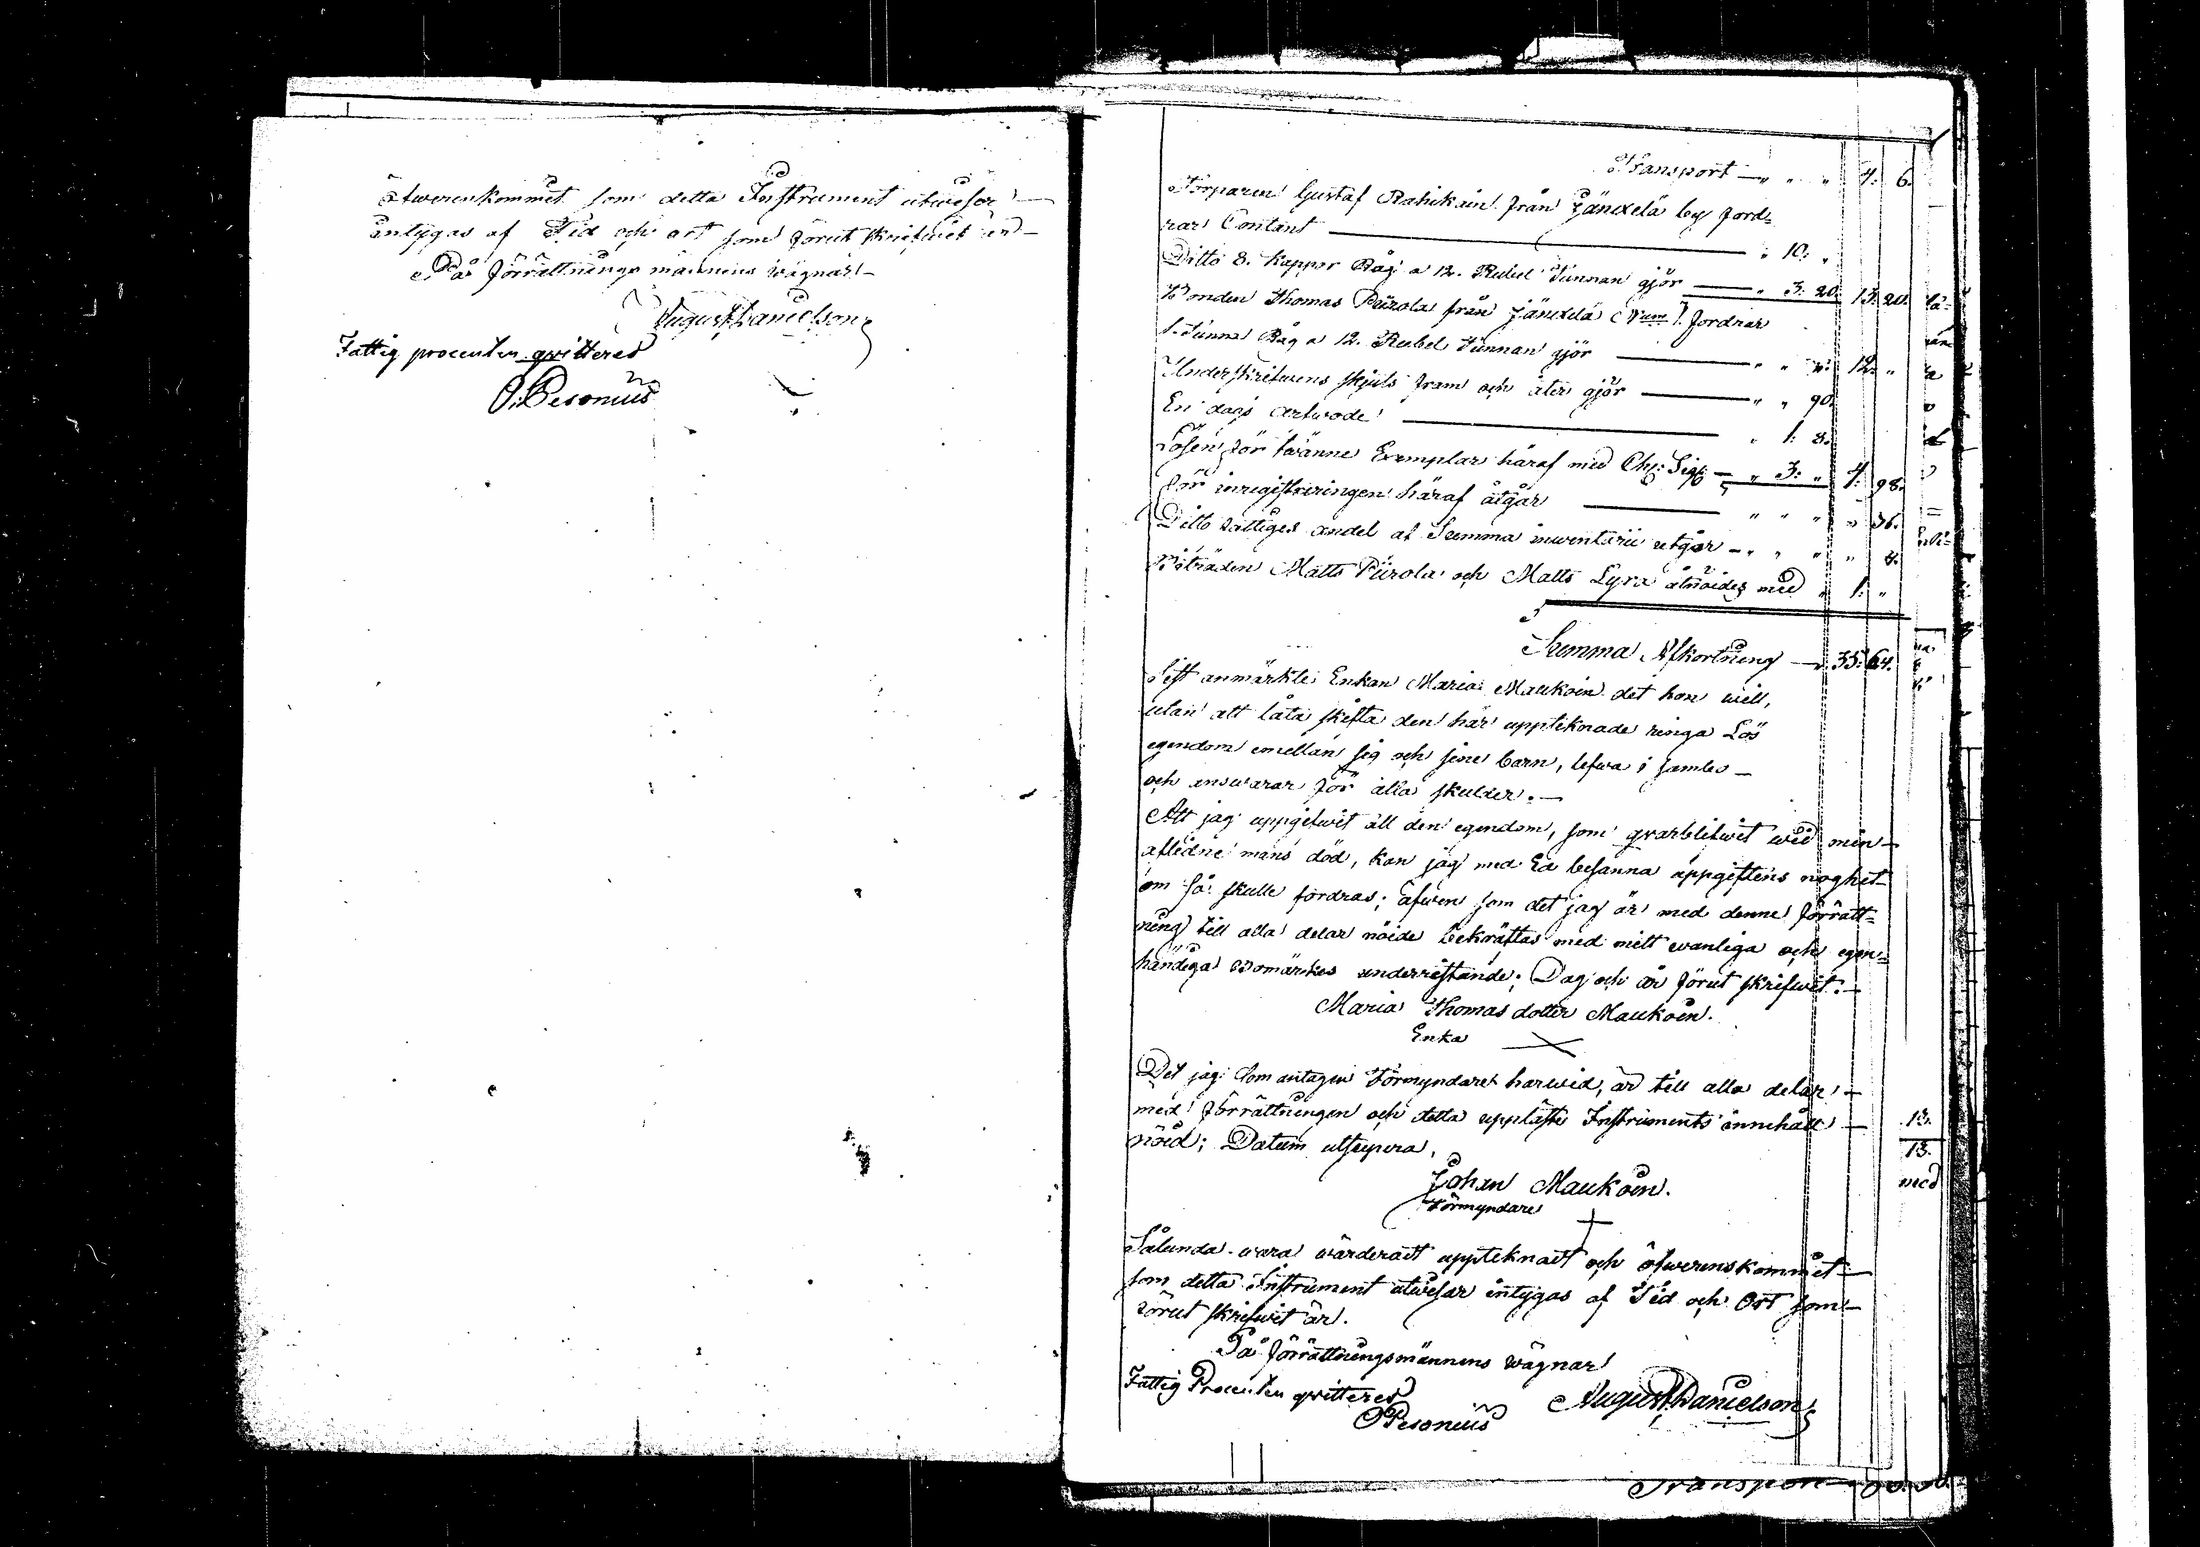 öfwerenkommet som detta Instrument utwisar —
intygas af Tid och ort som förut skrifwit är —
På förrättnings männens wägnar —
August Danielson
Fattig procenten qvitteras
O. Pesonius
Transport — " " " 4: 6.
Torparen Gustaf Rahikain från Jändelä by ford=
rar Contant — " 10: "
Ditto 8. kappor Råg a 12. Rubel Tunnan gjör — " 3: 20. 13: 20.
Bonden Thomas Piirola från Jändelä fordrar
1. Tunna Råg a 12. Rubel Tunnan gjör — " " " 12: "
Underskrifwens skjuts fram och åter gjör — " " 90.
En dags arfwode — " 1: 8.
Lösen för twänne Exemplar häraf med Ch: Sig: — " 3: " 4: 98.
För inregistreringen häraf åtgår — " " " " 36.
Ditto fattiges andel af Summa inventarii utgör — " " " " 4.
Biträden Matts Piirola och Matts Lyra åtnöides med " 1: "
Summa Afkortning — 35: 64.
Sist anmärkte Enkan Maria Maukoin det hon will,
utan att låta skifta den här uppteknade ringa Lös
egendom emellan sig och sine barn, lefwa i sambo —
och answarar för alla skulder. —
Att jag uppgifwit all den egendom, som qvarblifwit wid min —
afledne mans död, kan jag med Ed besanna uppgiftens noghet
om så skulle fordras; äfwen som det jag är med denne förrätt=
ning till alla delar nöide bekräftas med mitt wanliga och egen=
händiga bomärkes underristande; Dag och år förut skrifwit. —
Maria Thomas dotter Maukoin.
Enka
Det jag som antagen Förmyndare härwid, är till alla delar —
med förrättningen och detta uppläste Instruments innehåll —
nöid; Datum utsupra,
Johan Maukoin.
Förmyndare
Sålunda wara wärderadt uppteknadt och öfwerenskommit —
som detta Instrument utwisar intygas af Tid och Ort som —
förut skrifwit är.
På förrättningsmännens wägnar
Fattig Procenten qvitteras August Danielson
O Pesonius
13.
13.
med
Transport